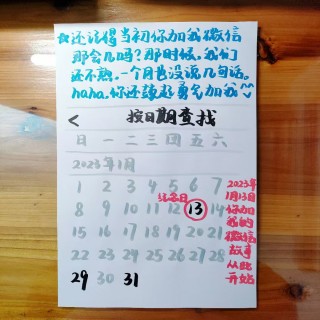 ☆还记得当初你加我微信
那会儿吗？那时候，我们
还不熟。一个月也没说几句话。
haha.你还鼓起勇气加我
< 按日期查找
日 一 二 三 四 五 六
2023年1月
1 2 3 4 5 6 7
纪念日
8 9 10 11 12 13 14
15 16 17 18 19 20 21
22 23 24 25 26 27 28
29 30 31
2023年
1月13日
你加
我的
微信
故事
从此
开始